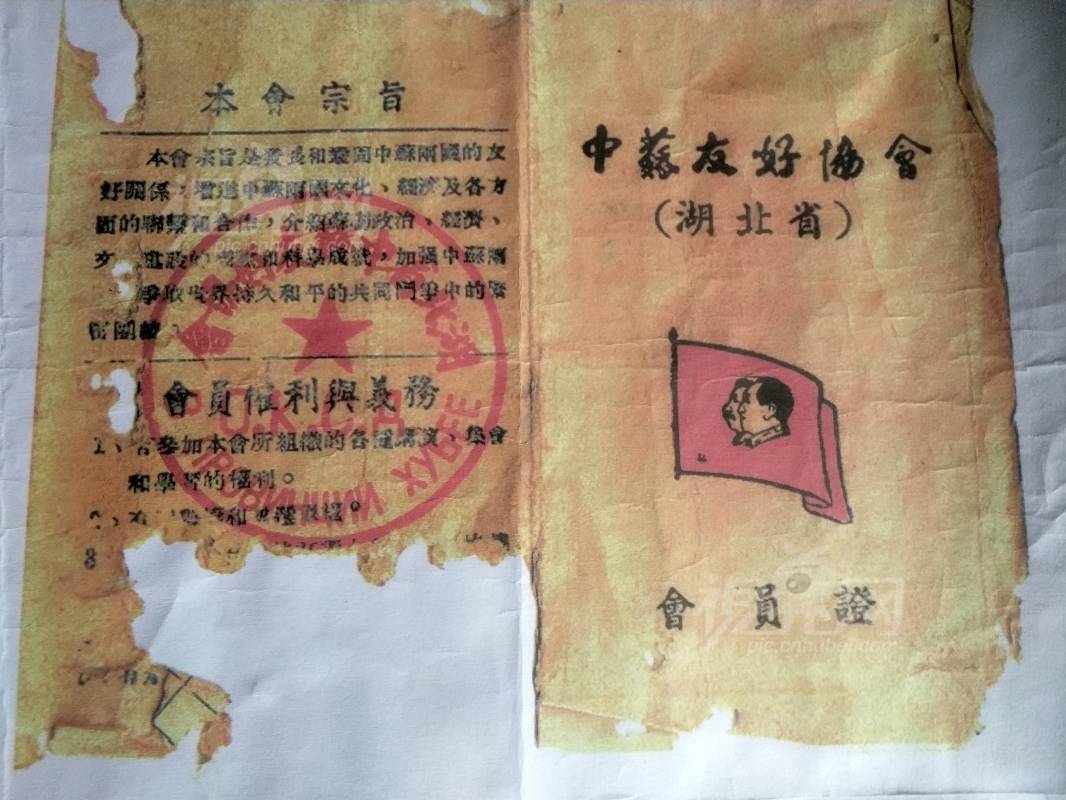 本會宗旨
本會宗旨是發展和鞏固中蘇兩國的友
好關係，增進中蘇兩國文化、經济及各方
面的聯繫和合作，介紹蘇聯政治、經濟、
文 建設的 和科學成就，加强中蘇兩
爭取世界持久和平的共同鬥爭中的緊
密團結。
會員權利與義務
1、有參加本會所組織的各種講演、集會
和學習的權利。
2、有 和 選 權。
3
中蘇友好協會
（湖北省）
會員證
pic.cnhubei.com